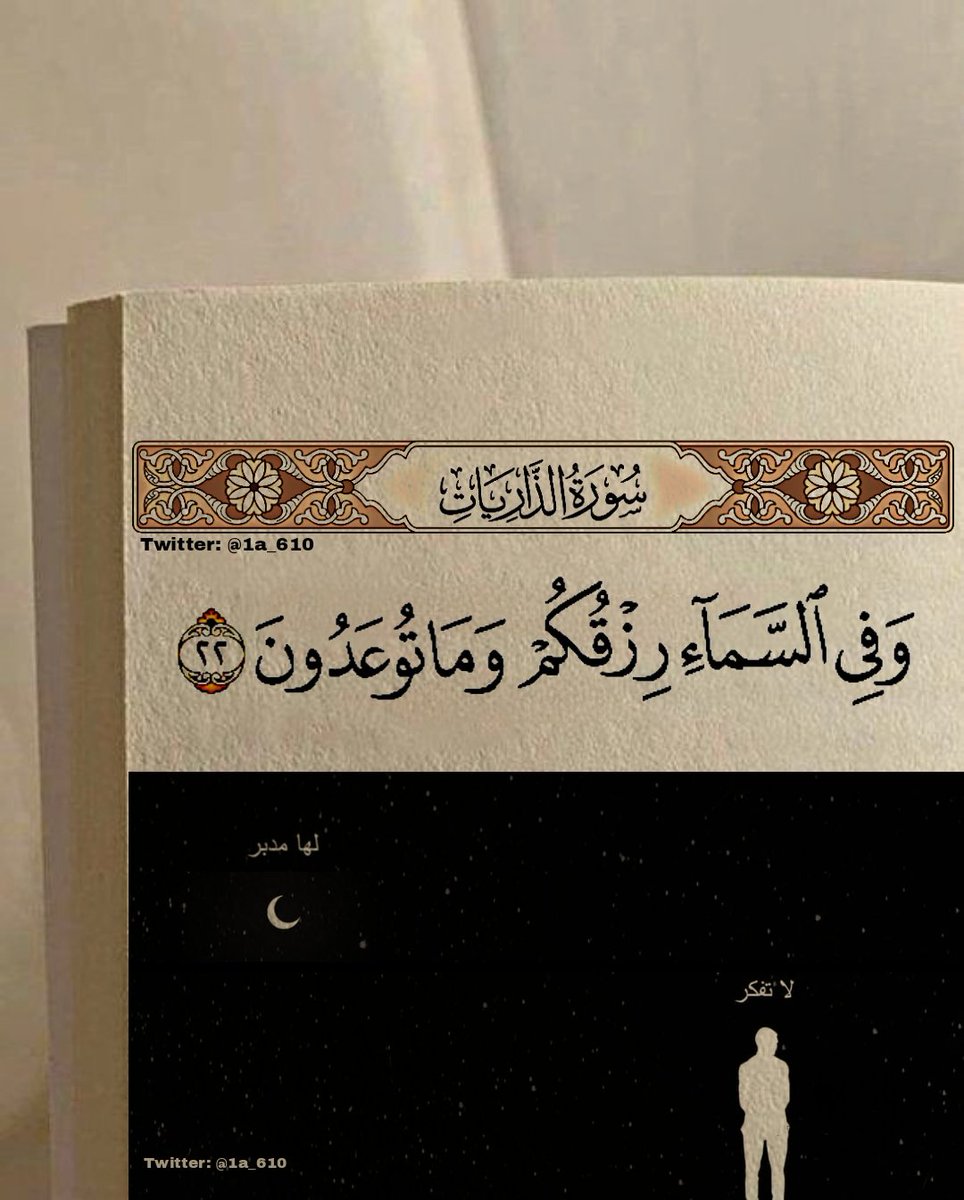 سُورَةُ الذَّارِيَاتِ
Twitter: @1a_610
وَفِي ٱلسَّمَآءِ رِزْقُكُمْ وَمَا تُوعَدُونَ ٢٢
لها مدبر
لا تفكر
Twitter: @1a_610